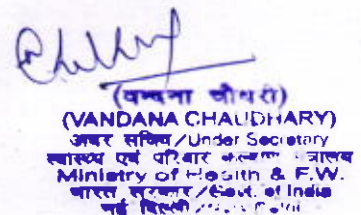 (वन्दना चौधरी)
(VANDANA CHAUDHARY)
अवर सचिव/Under Secretary
स्वास्थ्य एवं परिवार कल्याण
Ministry of Health & F.W.
भारत सरकार/Govt. of India
नई दिल्ली